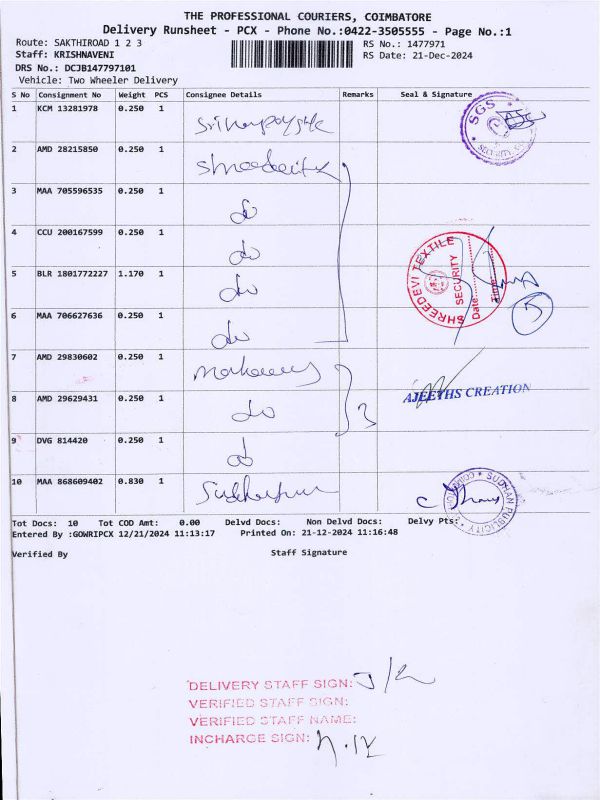 THE PROFESSIONAL COURIERS, COIMBATORE
Delivery Runsheet - PCX - Phone No.:0422-3505555 - Page No.:1
Route: SAKTHIROAD 1 2 3 RS No.: 1477971
Staff: KRISHNAVENI RS Date: 21-Dec-2024
DRS No.: DCJB147797101
Vehicle: Two Wheeler Delivery
S No Consignment No Weight PCS Consignee Details Remarks Seal & Signature
1 KCM 13281978 0.250 1 SGS SECURITY
2 AMD 28215850 0.250 1
3 MAA 705596535 0.250 1 do
4 CCU 200167599 0.250 1 do
5 BLR 1801772227 1.170 1 do SHREEDEVI TEXTILE SECURITY Date: Time: 5
6 MAA 706627636 0.250 1 do
7 AMD 29830602 0.250 1
8 AMD 29629431 0.250 1 do 3 AJEETHS CREATION
9 DVG 814420 0.250 1 do
10 MAA 868609402 0.830 1 SUDHAN PUBLICITY
Tot Docs: 10 Tot COD Amt: 0.00 Delvd Docs: Non Delvd Docs: Delvy Pts:
Entered By :GOWRIPCX 12/21/2024 11:13:17 Printed On: 21-12-2024 11:16:48
Verified By Staff Signature
DELIVERY STAFF SIGN:
VERIFIED STAFF SIGN:
VERIFIED STAFF NAME:
INCHARGE SIGN: